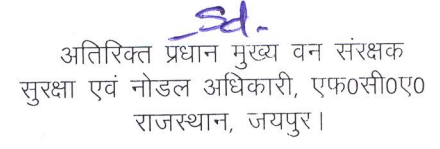 -Sd-
अतिरिक्त प्रधान मुख्य वन संरक्षक
सुरक्षा एवं नोडल अधिकारी, एफ0सी0ए0
राजस्थान, जयपुर।